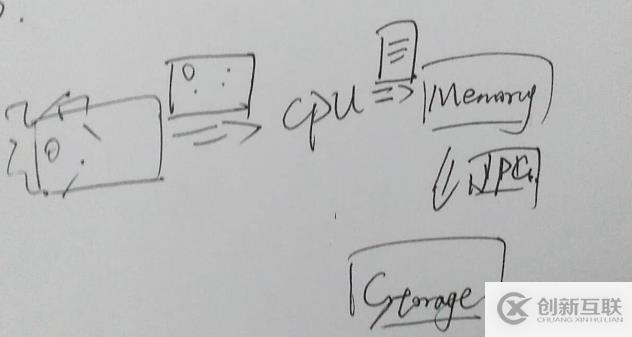 CPU
Memory
JPG
Storage
创新互联
CHUANG XIN HU LIAN